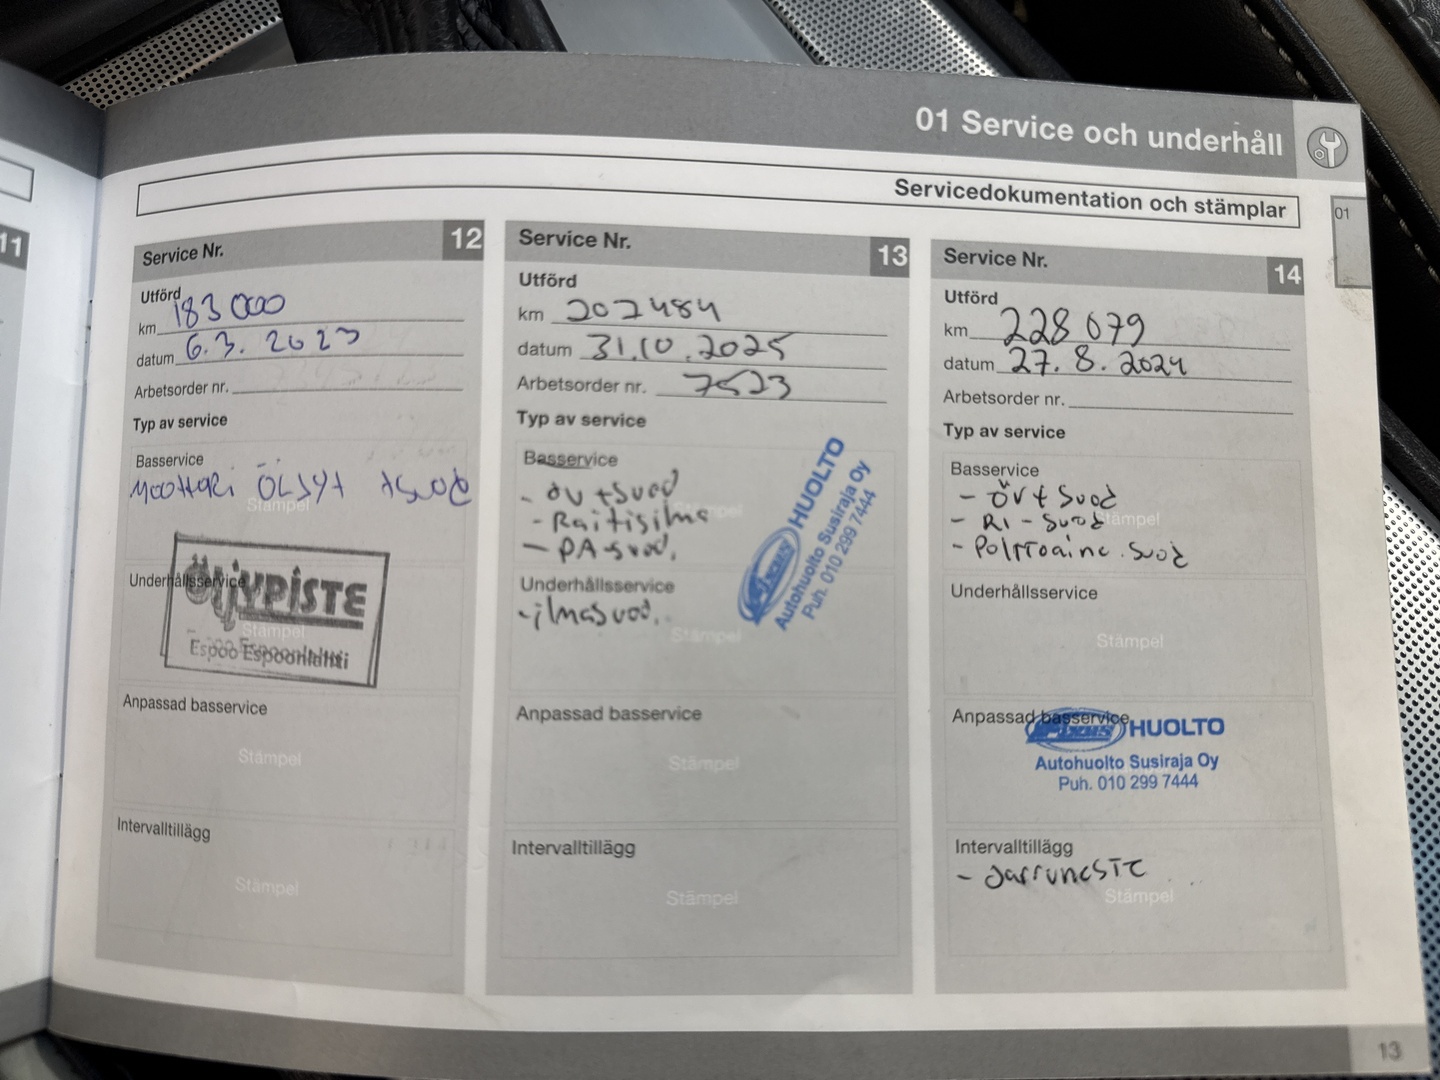 01 Service och underhåll
Servicedokumentation och stämplar
01
11
Service Nr. 12
Utförd
km 183000
datum 6.3. 2023
Arbetsorder nr.
Typ av service
Basservice
Moottori ÖLJYT +SUOD
Stämpel
Underhållsservice
ÖljYPISTE
Stämpel
Espoo Espoonlahti
Anpassad basservice
Stämpel
Intervalltillägg
Stämpel
Service Nr. 13
Utförd
km 207484
datum 31.10.2025
Arbetsorder nr. 7523
Typ av service
Basservice
- öv+suod
Stämpel
- Raitisilma
- PA-suod.
HUOLTO
Autohuolto Susiraja Oy
Puh. 010 299 7444
Underhållsservice
- ilmasuod.
Stämpel
Anpassad basservice
Stämpel
Intervalltillägg
Stämpel
Service Nr. 14
Utförd
km 228 079
datum 27.8.2024
Arbetsorder nr.
Typ av service
Basservice
- öv+suod
- RI-suod
Stämpel
- Polttoaine.suod
Underhållsservice
Stämpel
Anpassad basservice
HUOLTO
Autohuolto Susiraja Oy
Puh. 010 299 7444
Intervalltillägg
- Jarruneste
Stämpel
13